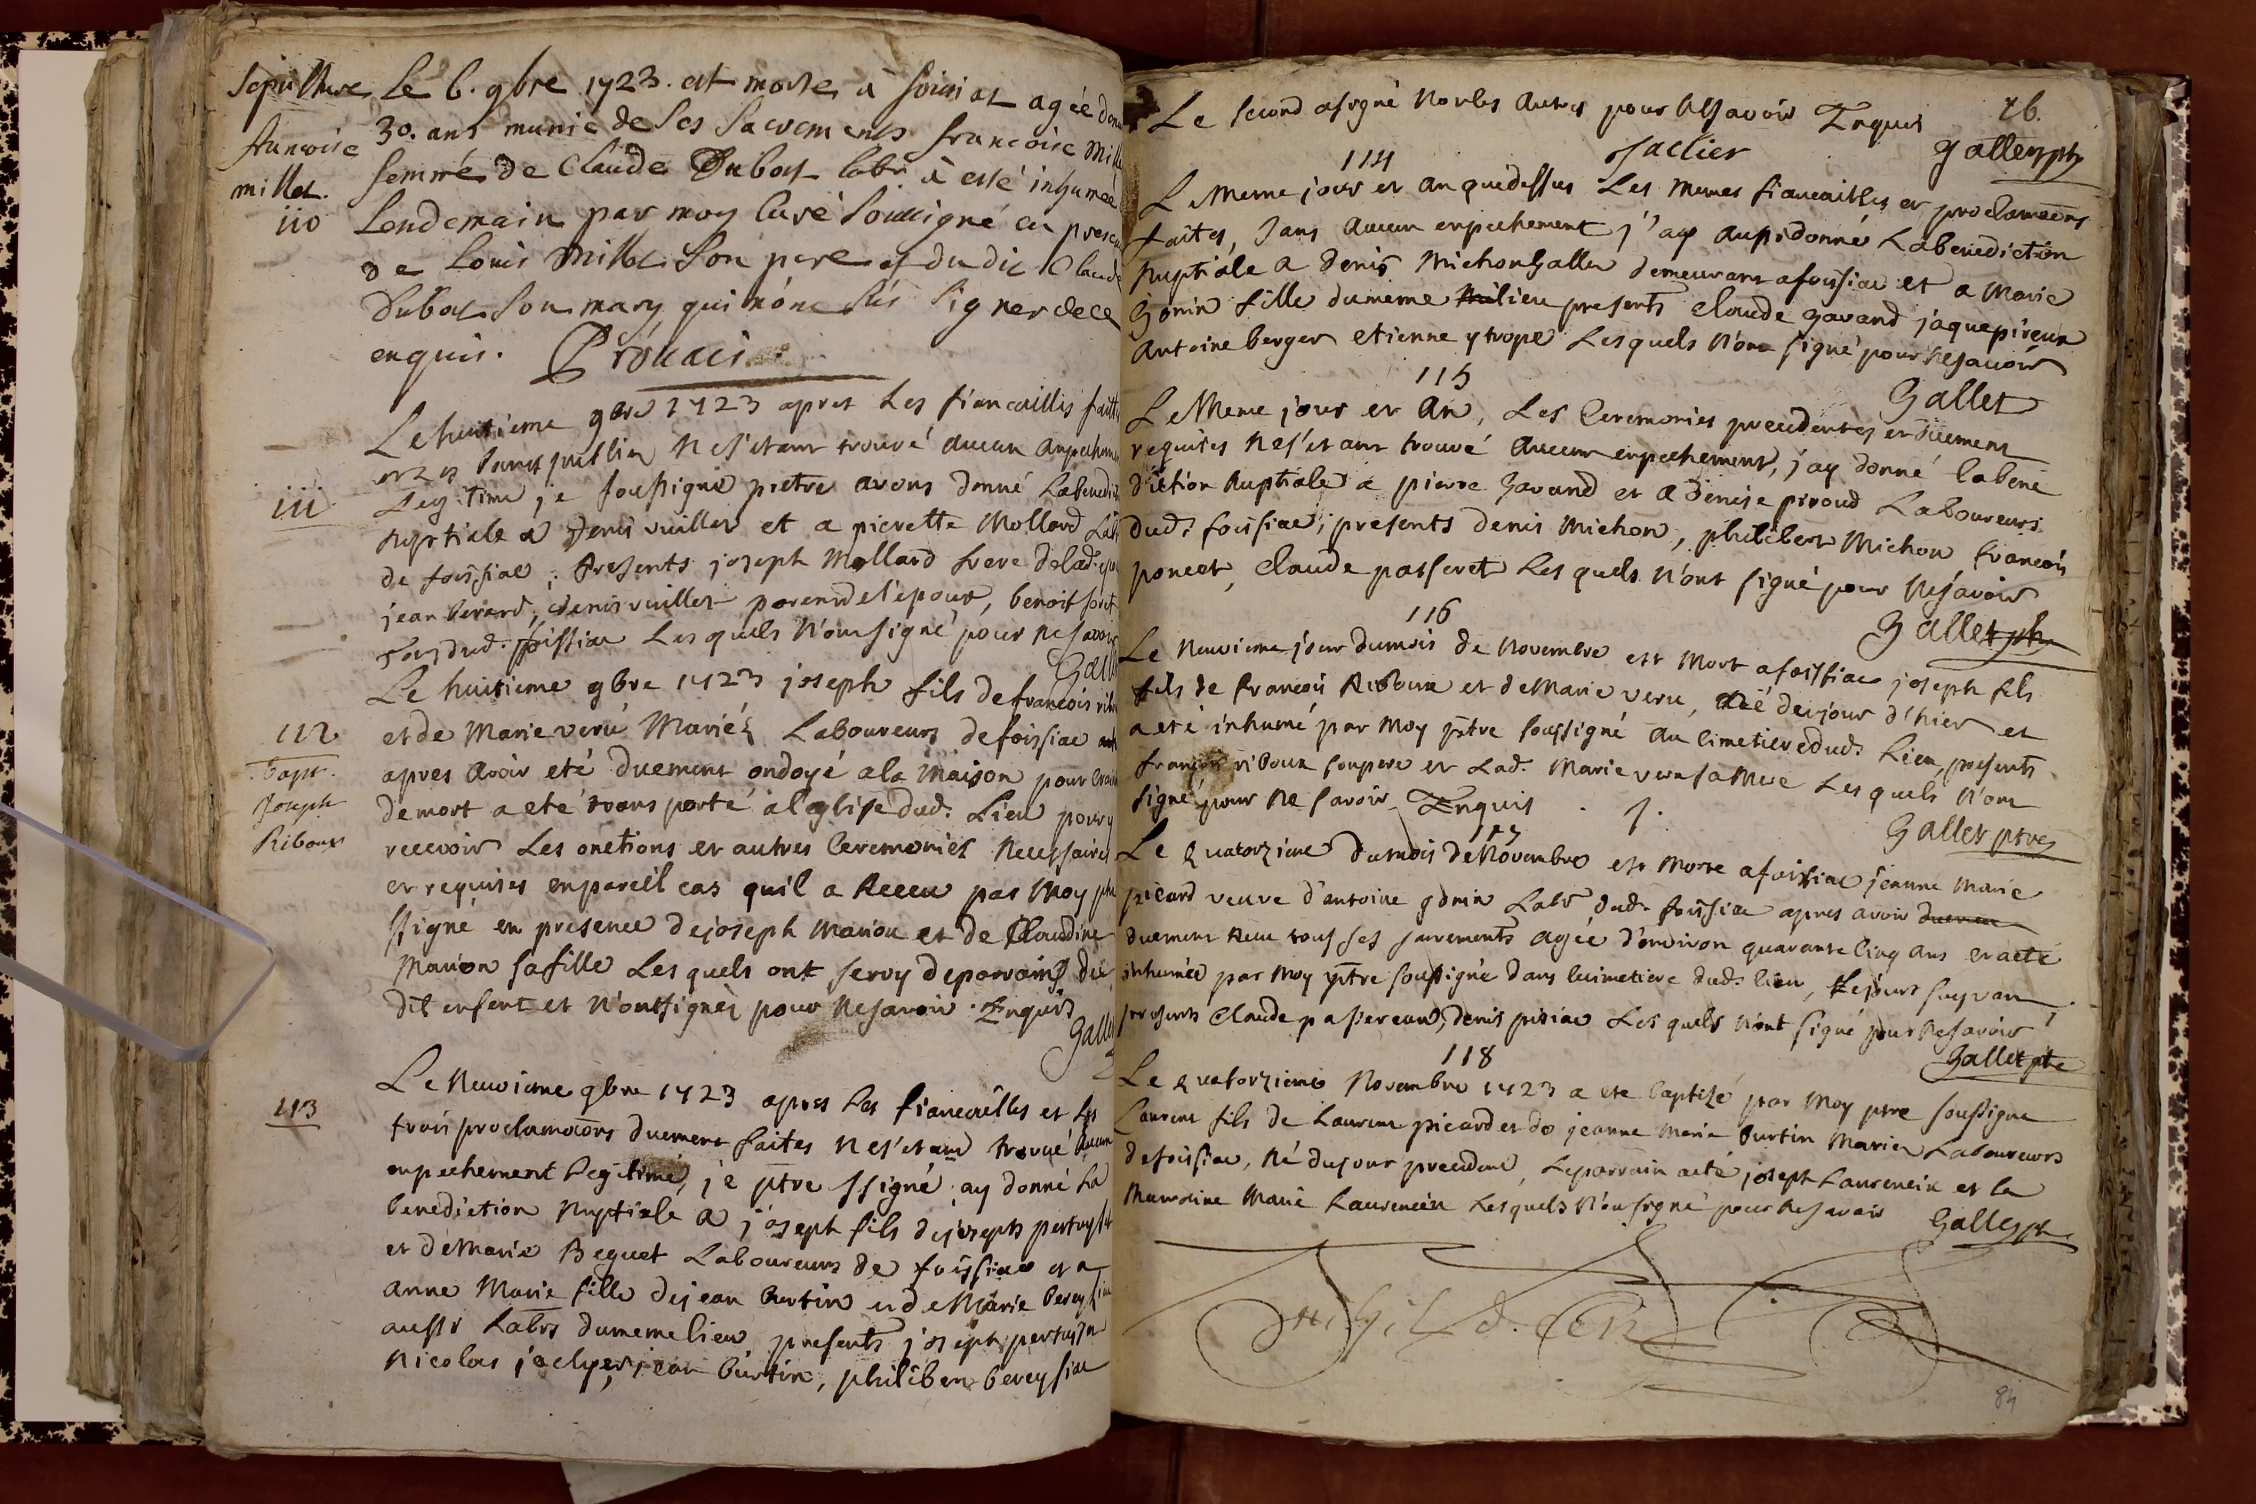 Sepulture
francoise
millet.
110
Le 6. 9bre 1723. est morte à foissiat agée denv
30. ans munie de Ses Sacrements francoise Mille
femme de Claude Dubost labr. à esté inhumée
Lendemain par moy Curé Soussigné en presen
de Louis Millet Son pere et dudit Claude
Dubost Son mary qui n'ont Sçu Signer de ce
enquis. Prouaci
111
Le huitieme 9bre 1723 apres Les fiancailles faitte
et 3 es bancs publiés Ne s'etant trouvé aucun Anpechemen
Legitime je soussigné pretre avons donné La benedict
nuptiale a Denis vuillet et a pierrette Mollard Lab
de foissiac; Presents joseph Mollard frere de lad. epou
jean Berard, denis vuillet parend de l'epoux, benoit foret
Tous dud. foissiac Les quels N'ont signé pour ne savoir
Galle
112
Bapt.
Joseph
Riboux
Le huitieme 9bre 1723 joseph fils de francois ribou
et de Marie veru Mariés Laboureurs de foissiac
apres avoir eté duement ondoyé a la Maison pour crain
de mort a eté transporté a l'eglise dud. Lieu pour y
recevoir Les onctions et autres Ceremonies Necessaires
et requises en pareil cas qu'il a Receu par Moy ptre
ssigné en presence de joseph Marion et de Claudine
Marion sa fille Les quels ont servy de parrains du
dit enfent et N'ont signés pour Ne savoir. Enquis
Galle
113
Le Neuvieme 9bre 1723 apres Les fiancailles et Les
trois proclamaons duement faites Ne s'etant trouvé Aucun
enpechement Legitime, je ptre ssigné ay donné La
benediction Nuptiale a joseph fils de joseph
et de Marie Beguet Laboureurs de foissiac et a
Anne Marie fille de jean Burtin et de Marie
aussi Labrs du meme lieu presents joseph
Nicolas jean burtin, philibert bereysiat
76.
Le second a signé Non les Autres pour Ne savoir Enquis
Jaclier Gallet ptr
114
Le Meme jour et an que dessus Les Memes fiancailles et proclamaons
faites, Sans Aucun enpechement j'ay aussi donné La benediction
Nuptiale a Denis Michon Gallet demeurant a foissiac et a Marie
Gonin fille du meme lieu presents Claude gavand jaque pireux
Antoine berger etienne ytrope Lesquels N'ont signé pour Ne savoir
Gallet
115
Le Meme jour et An, Les Ceremonies precedentes et duement
requises Ne s'etant trouvé Aucun enpechement, j'ay donné la bene
diction Nuptiale a pierre Gavand et a Denise piroud Laboureurs
dud. foissiac; presents Denis Michon, philibert Michon francois
poncet, Claude passeret Les quels N'ont signé pour Ne savoir
Gallet ptr
116
Le Neuvieme jour du mois de Novembre est Mort a foissiac joseph fils
fils de francois Riboux et de Marie veru, Né du jour d'hier et
a eté inhumé par Moy ptre soussigné au Cimetiere dud. Lieu, presents
francois riboux son pere et Lad. Marie veru sa Mere Les quels N'ont
signé pour Ne savoir Enquis
Gallet ptre
117
Le Quatorzieme du mois de Novembre est Morte a foissiac jeanne Marie
picard veuve d'antoine gonin Labr dud. foissiac apres avoir
duement Receu tous ses sacrements agée d'environ quarante Cinq ans et a eté
inhumée par Moy ptre soussigné dans le cimetiere dud. lieu, Le jour suyvant
presents Claude passereaux, denis pisiac Les quels N'ont signé pour Ne savoir
Gallet ptre
118
Le Quatorzieme Novembre 1723 a eté baptizé par Moy ptre soussigné
Laurent fils de Laurent picard et de jeanne Marie Burtin Mariez Laboureurs
de foissiac, Né du jour precedent, Le parrain a eté joseph Laurencin et la
Marraine Marie Laurencin Lesquels N'ont signé pour Ne savoir
Gallet ptr
84